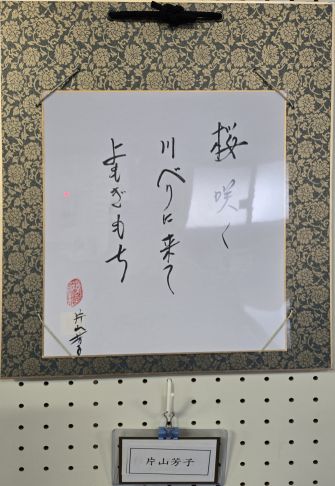 桜咲く
川べりに来て
よもぎもち
片山芳子
片山芳子